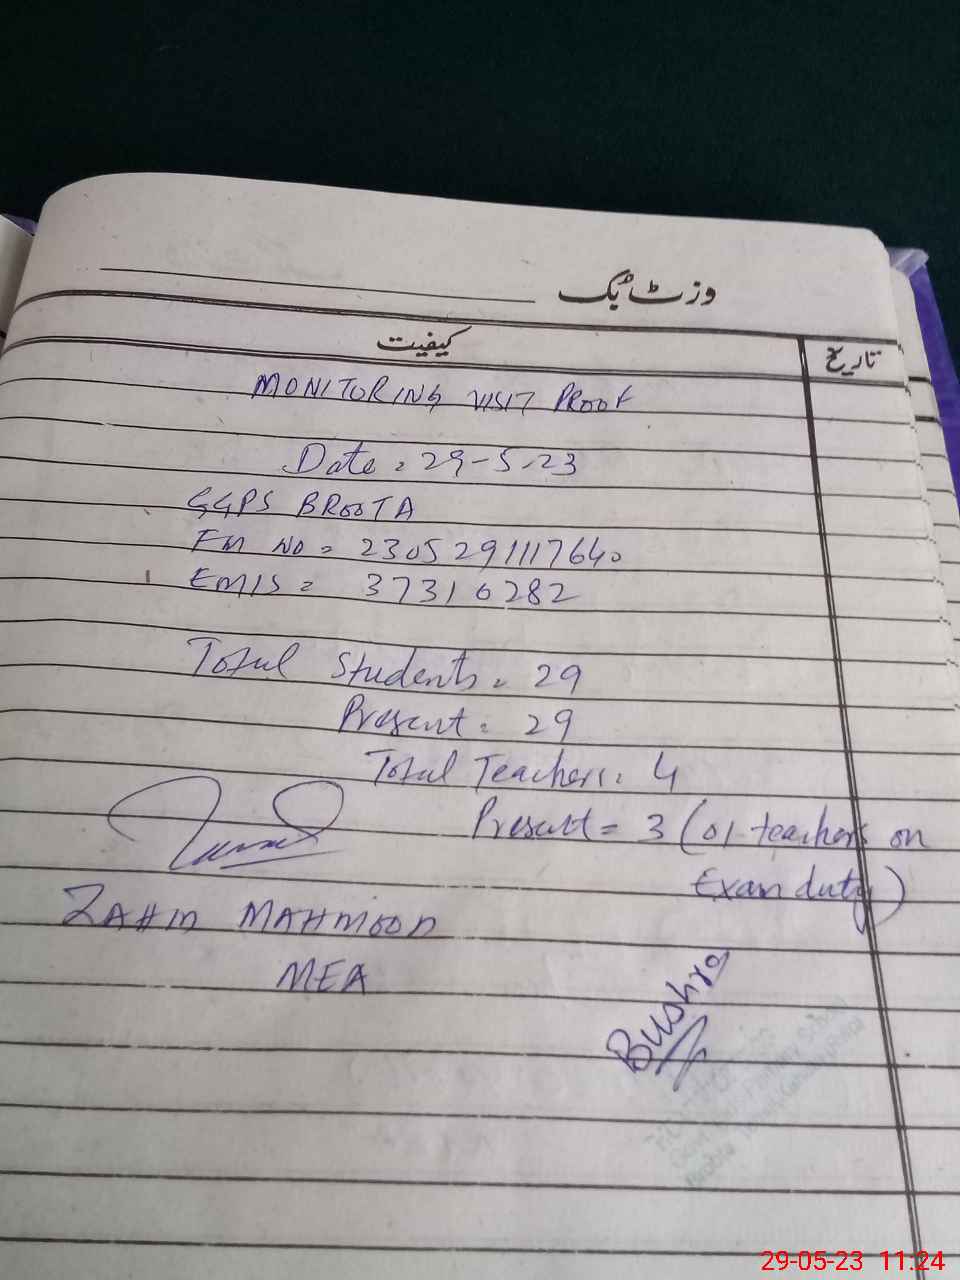 وزٹ بُک
کیفیت
تاریخ
MONITORING VISIT PROOF
Date = 29-5-23
GGPS BROOTA
FM NO = 2305291117640
EMIS = 37316282
Total Students = 29
Present = 29
Total Teachers = 4
Present = 3 (01 teachers on
Exam duty)
MAHMOOD
MEA
Bushra
29-05-23 11:24